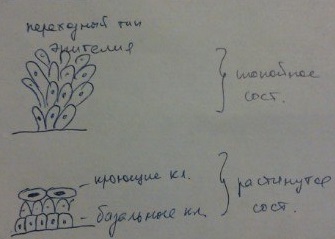 переходный тип
эпителия
спокойное
сост.
кроющие кл.
базальные кл.
растянутое
сост.